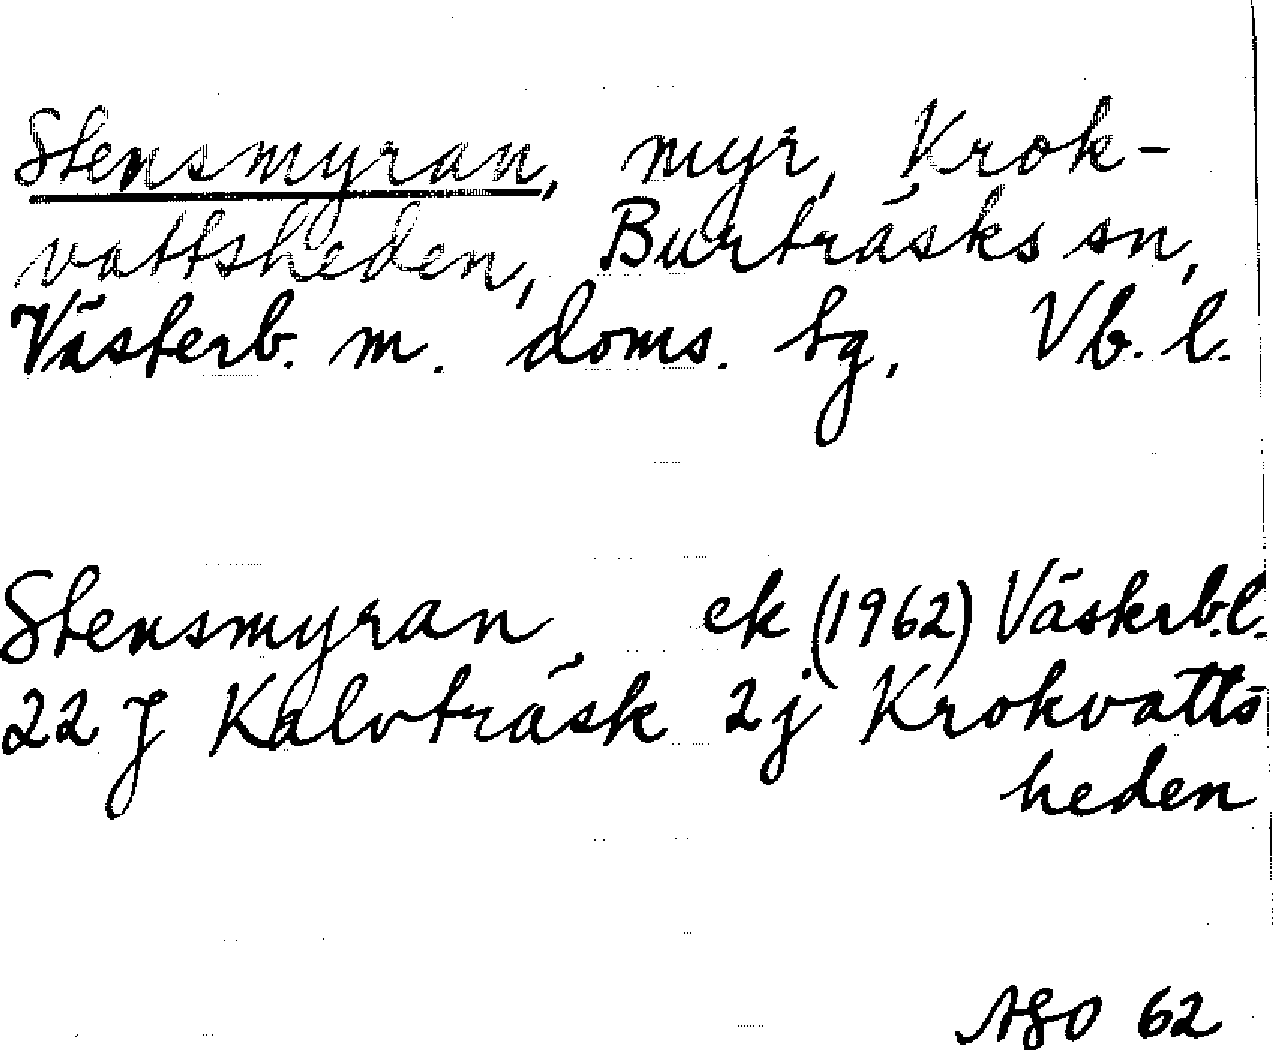 Stensmyran, myr, Krok-
vattsheden, Burträsks sn,
Västerb. m. doms. tg, Vb. l.
Stensmyran, ek (1962) Västerb.l.
22 J Kalvträsk 2j Krokvatts
heden
62